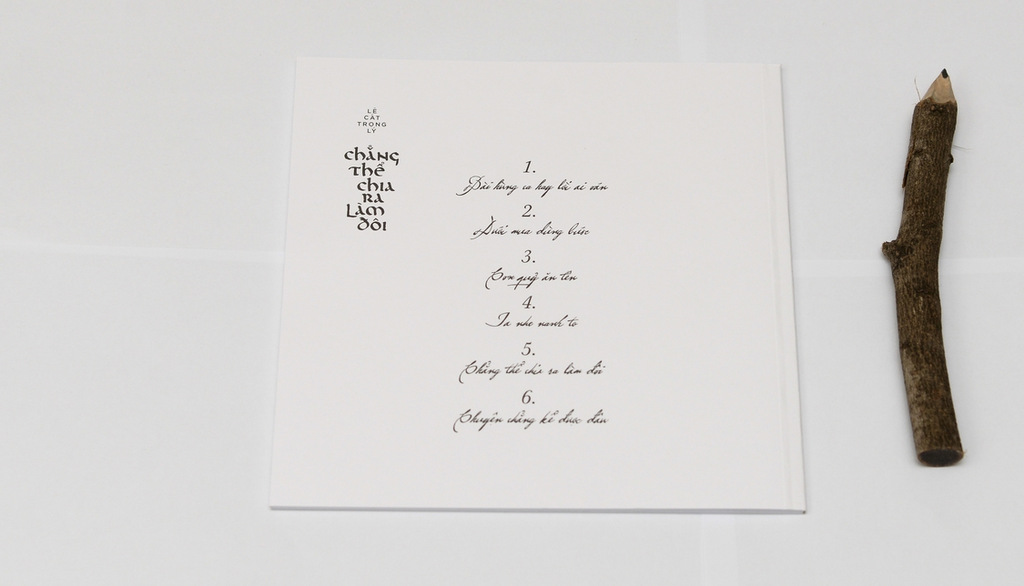 LÊ
CÁT
TRỌNG
LÝ
chẳng
thể
chia
ra
làm
đôi
1.
Bài hùng ca hay lời ai oán
2.
Dưới mưa dừng bước
3.
Con quỷ ăn len
4.
Ta nhe nanh to
5.
Chẳng thể chia ra làm đôi
6.
Chuyện chẳng kể được đâu